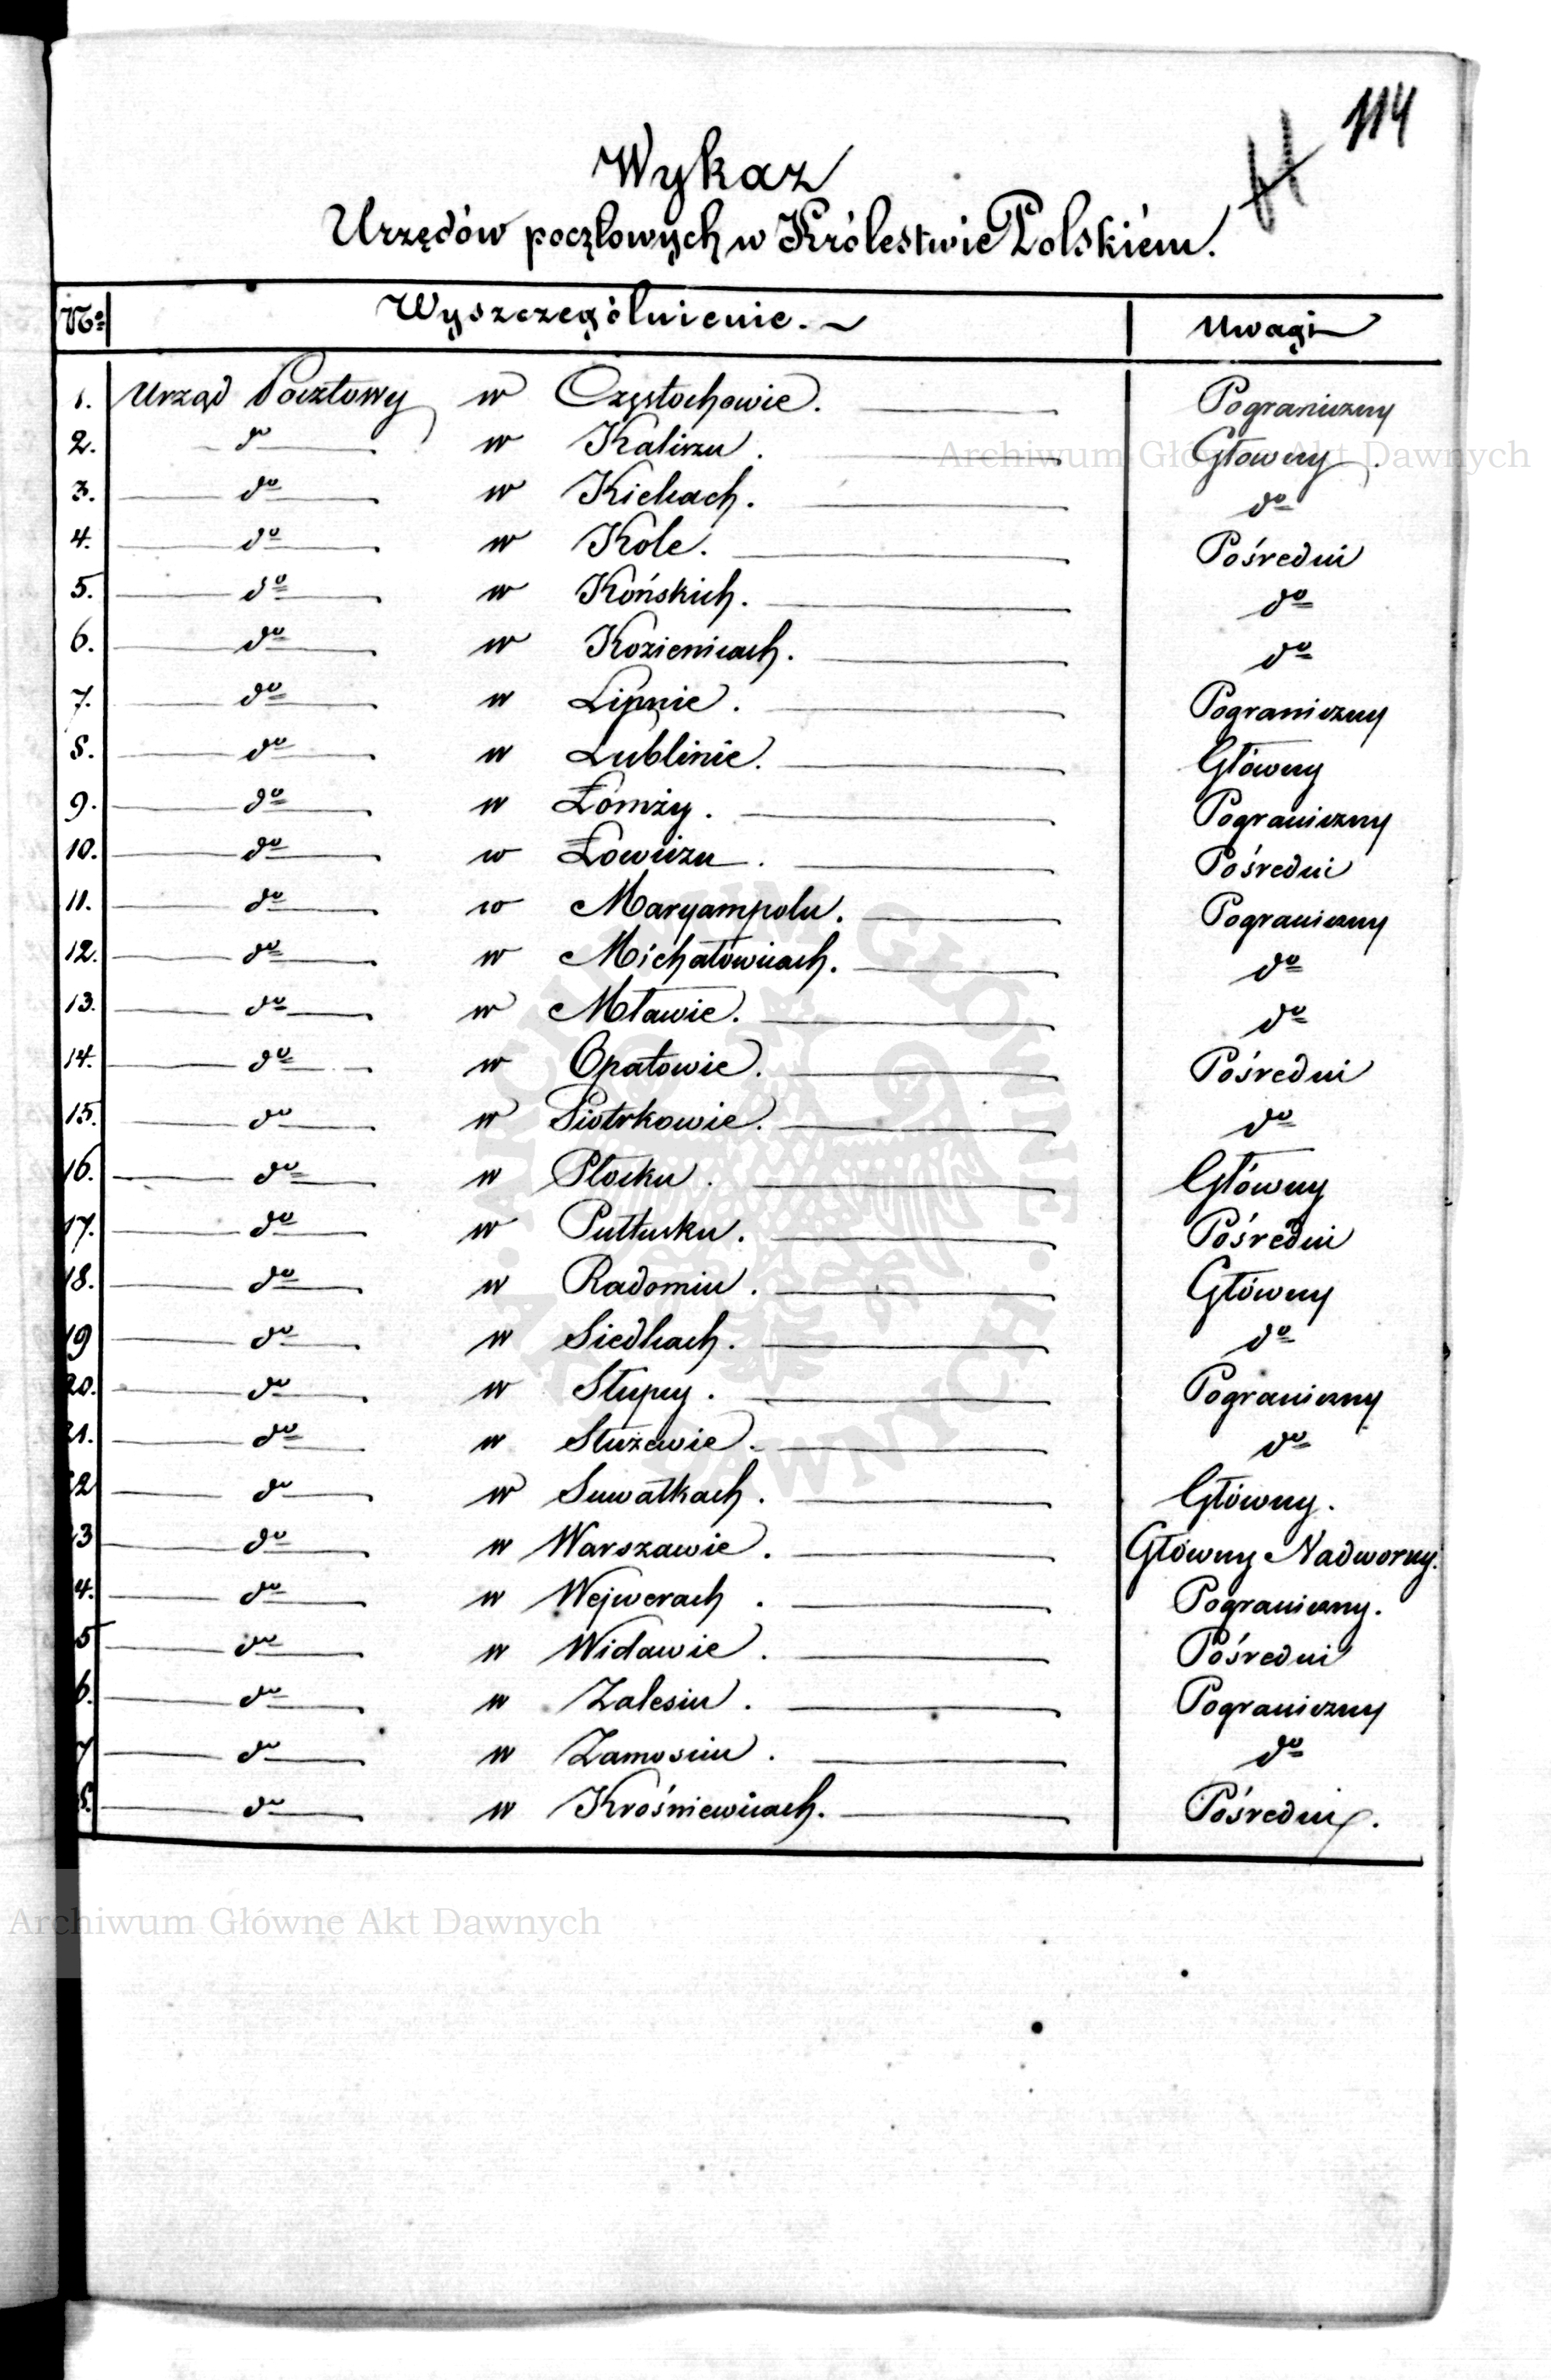 114
H
Wykaz
Urzędów pocztowych w Królestwie Polskiém.
No Wyszczególnienie. Uwagi
1. Urząd Pocztowy w Częstochowie. Pograniczny
2. do w Kaliszu. Główny
3. do w Kielcach. do
4. do w Kole. Pośredni
5. do w Końskich. do
6. do w Kozienicach. do
7. do w Lipnie. Pograniczny
8. do w Lublinie. Główny
9. do w Łomży. Pograniczny
10. do w Łowiczu. Pośredni
11. do w Maryampolu. Pograniczny
12. do w Michałowicach. do
13. do w Mławie. do
14. do w Opatowie. Pośredni
15. do w Piotrkowie. do
16. do w Płocku. Główny
17. do w Pułtusku. Pośredni
18. do w Radomiu. Główny
19 do w Siedlcach. do
20. do w Słupcy. Pograniczny
21. do w Służewie. do
22 do w Suwałkach. Główny.
23 do w Warszawie. Główny Nadworny.
24. do w Wejwerach. Pograniczny.
25 do w Widawie. Pośredni
26. do w Zalesiu. Pograniczny
27 do w Zamosciu. do
28. do w Krośniewicach. Pośredni.
Archiwum Główne Akt Dawnych
Archiwum Główne Akt Dawnych
ARCHIWUM GŁÓWNE AKT DAWNYCH